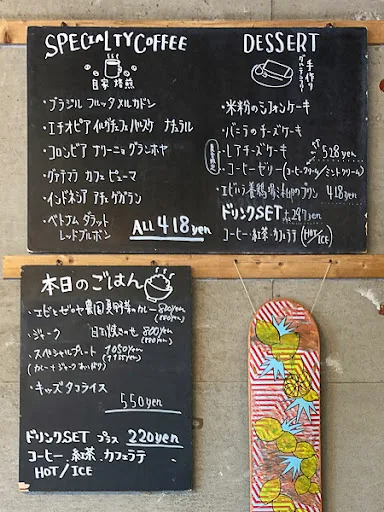 SPECIALTY COFFEE
自家 焙煎
・ブラジル フルッタ メルカドン
・エチオピア ナチュラル
・コロンビア ナリーニョ グランホヤ
・グァテマラ カフェ ピューマ
・インドネシア アチェ ゲガラン
・ベトナム ダラット
レッドブルボン
ALL 418yen
DESSERT
手作り
グルテンフリー
・米粉のシフォンケーキ
・バニラのチーズケーキ
・レアチーズケーキ
528yen
・コーヒーゼリー(コーヒークリーム/ミントクリーム)
プリン 418yen
ドリンクSET 297yen
コーヒー・紅茶・カフェラテ (HOT/ICE)
本日のごはん
カレー 800yen
・ジャーク 800yen
・スペシャルプレート 1050yen
・キッズタコライス
550yen
ドリンクSET プラス 220yen
コーヒー、紅茶、カフェラテ
HOT/ICE